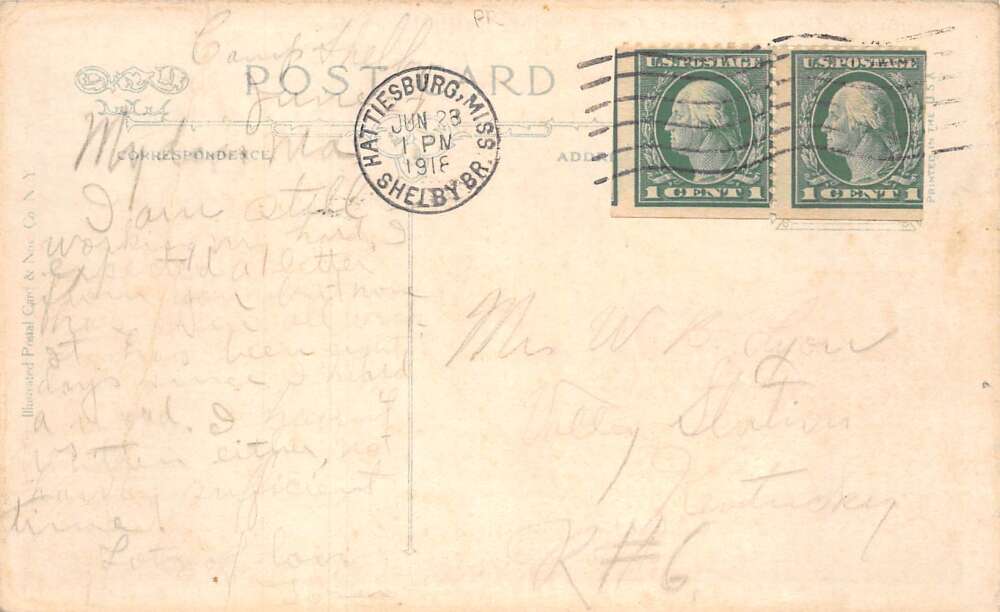 PR
Camp Shelby
POST CARD
June
HATTIESBURG, MISS.
JUN 28
1 PM
1918
SHELBY BR.
U.S. POSTAGE
1 CENT 1
U.S. POSTAGE
1 CENT 1
PRINTED IN THE U.S.A
CORRESPONDENCE
ADDRE
Illustrated Postal Card & Nov. Co. N.Y.
My
I am still
working very hard, I
expected a letter
from you but none
has come all week
It has been eight
days since I heard
a word. I haven't
written either, not
having sufficient
time.
Lots of love
Mrs W. R. Lyon
Valley Station
Kentucky
R#6